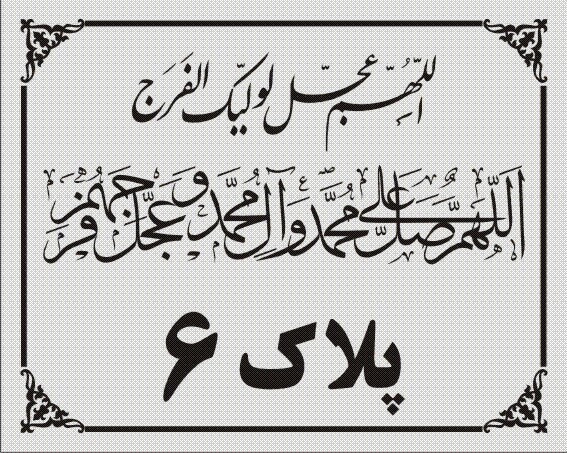 اللّهمّ عجّل لولیّک الفرج
اَللّهمّ صَلّ عَلی محمَّد وَآلِ محمَّد وَ عَجّل فرجَهم
پلاک ۶